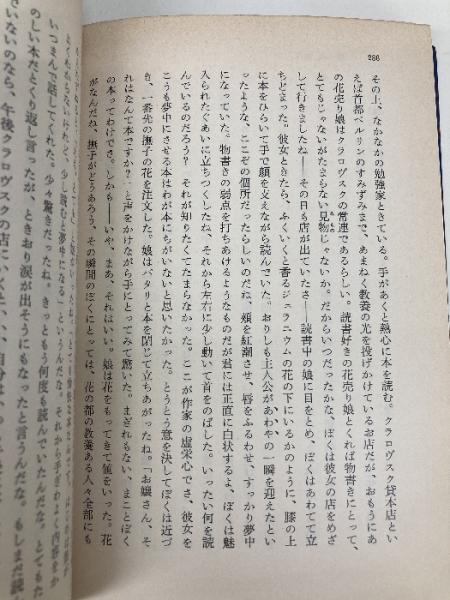 286
その上、なかなかの勉強家ときている。手があくと熱心に本を読む。クラロヴスク貸本店とい
えば首都ベルリンのすみずみまで、あまねく教養の光を投げかけているお店だが、おもうにあ
の花売り娘はクラロヴスクの常連であるらしい。読書好きの花売り娘とくれば物書きにとって、
とてもじゃないがたまらない見物じゃないか。だからいつだったかな、ぼくは彼女の店をめざ
して行きましたね――その日も店が出ていたさ――読書中の娘に目をとめ、ぼくはあわてて立
ちどまった。彼女ときたら、ふくいくと香るジェラニウムの花の下にいるかのように、膝の上
に本をひらいて手で顔を支えながら読んでいた。おりしも主人公があわやの一瞬を迎えたとい
ったような、ここぞの個所だったらしいのだね、頬を紅潮させ、唇をふるわせ、すっかり夢中
になっていた。物書きの弱点を打ちあけるようなものだが君には正直に白状するよ、ぼくは魅
入られたぐあいに立ちつくしたね、それから左右に少し動いて首をのばした。いったい何を読
んでいるのだろう? それが知りたくてたまらなかった。ここが作家の虚栄心でさ、彼女を
こうも夢中にさせる本はわが本にちがいないと思いたかった。とうとう意を決してぼくは近づ
き、一番先の撫子の花を注文した。娘はバタリと本を閉じて立ちあがったね。「お嬢さん、そ
れはなんて本ですか?」と声をかけながら手にとってみて驚いた。まぎれもない、まことぼく
の本ってわけでさ。しかも――いや、まあ、それはいい。娘は花をもってきて値をいった。花
がなんだね、撫子がどうあろう、その瞬間のぼくにとっては、花の都の教養ある人々全部にも
いつまんで話してくれた。少々驚きだったね。きっともう何度も読んでいたんだな、とてもた
のしい本だとくり返し言ったが、ときおり涙が出そうにもなったと言うんだな。もしまだ読
でいないのなら、午後クラロヴスクの店に